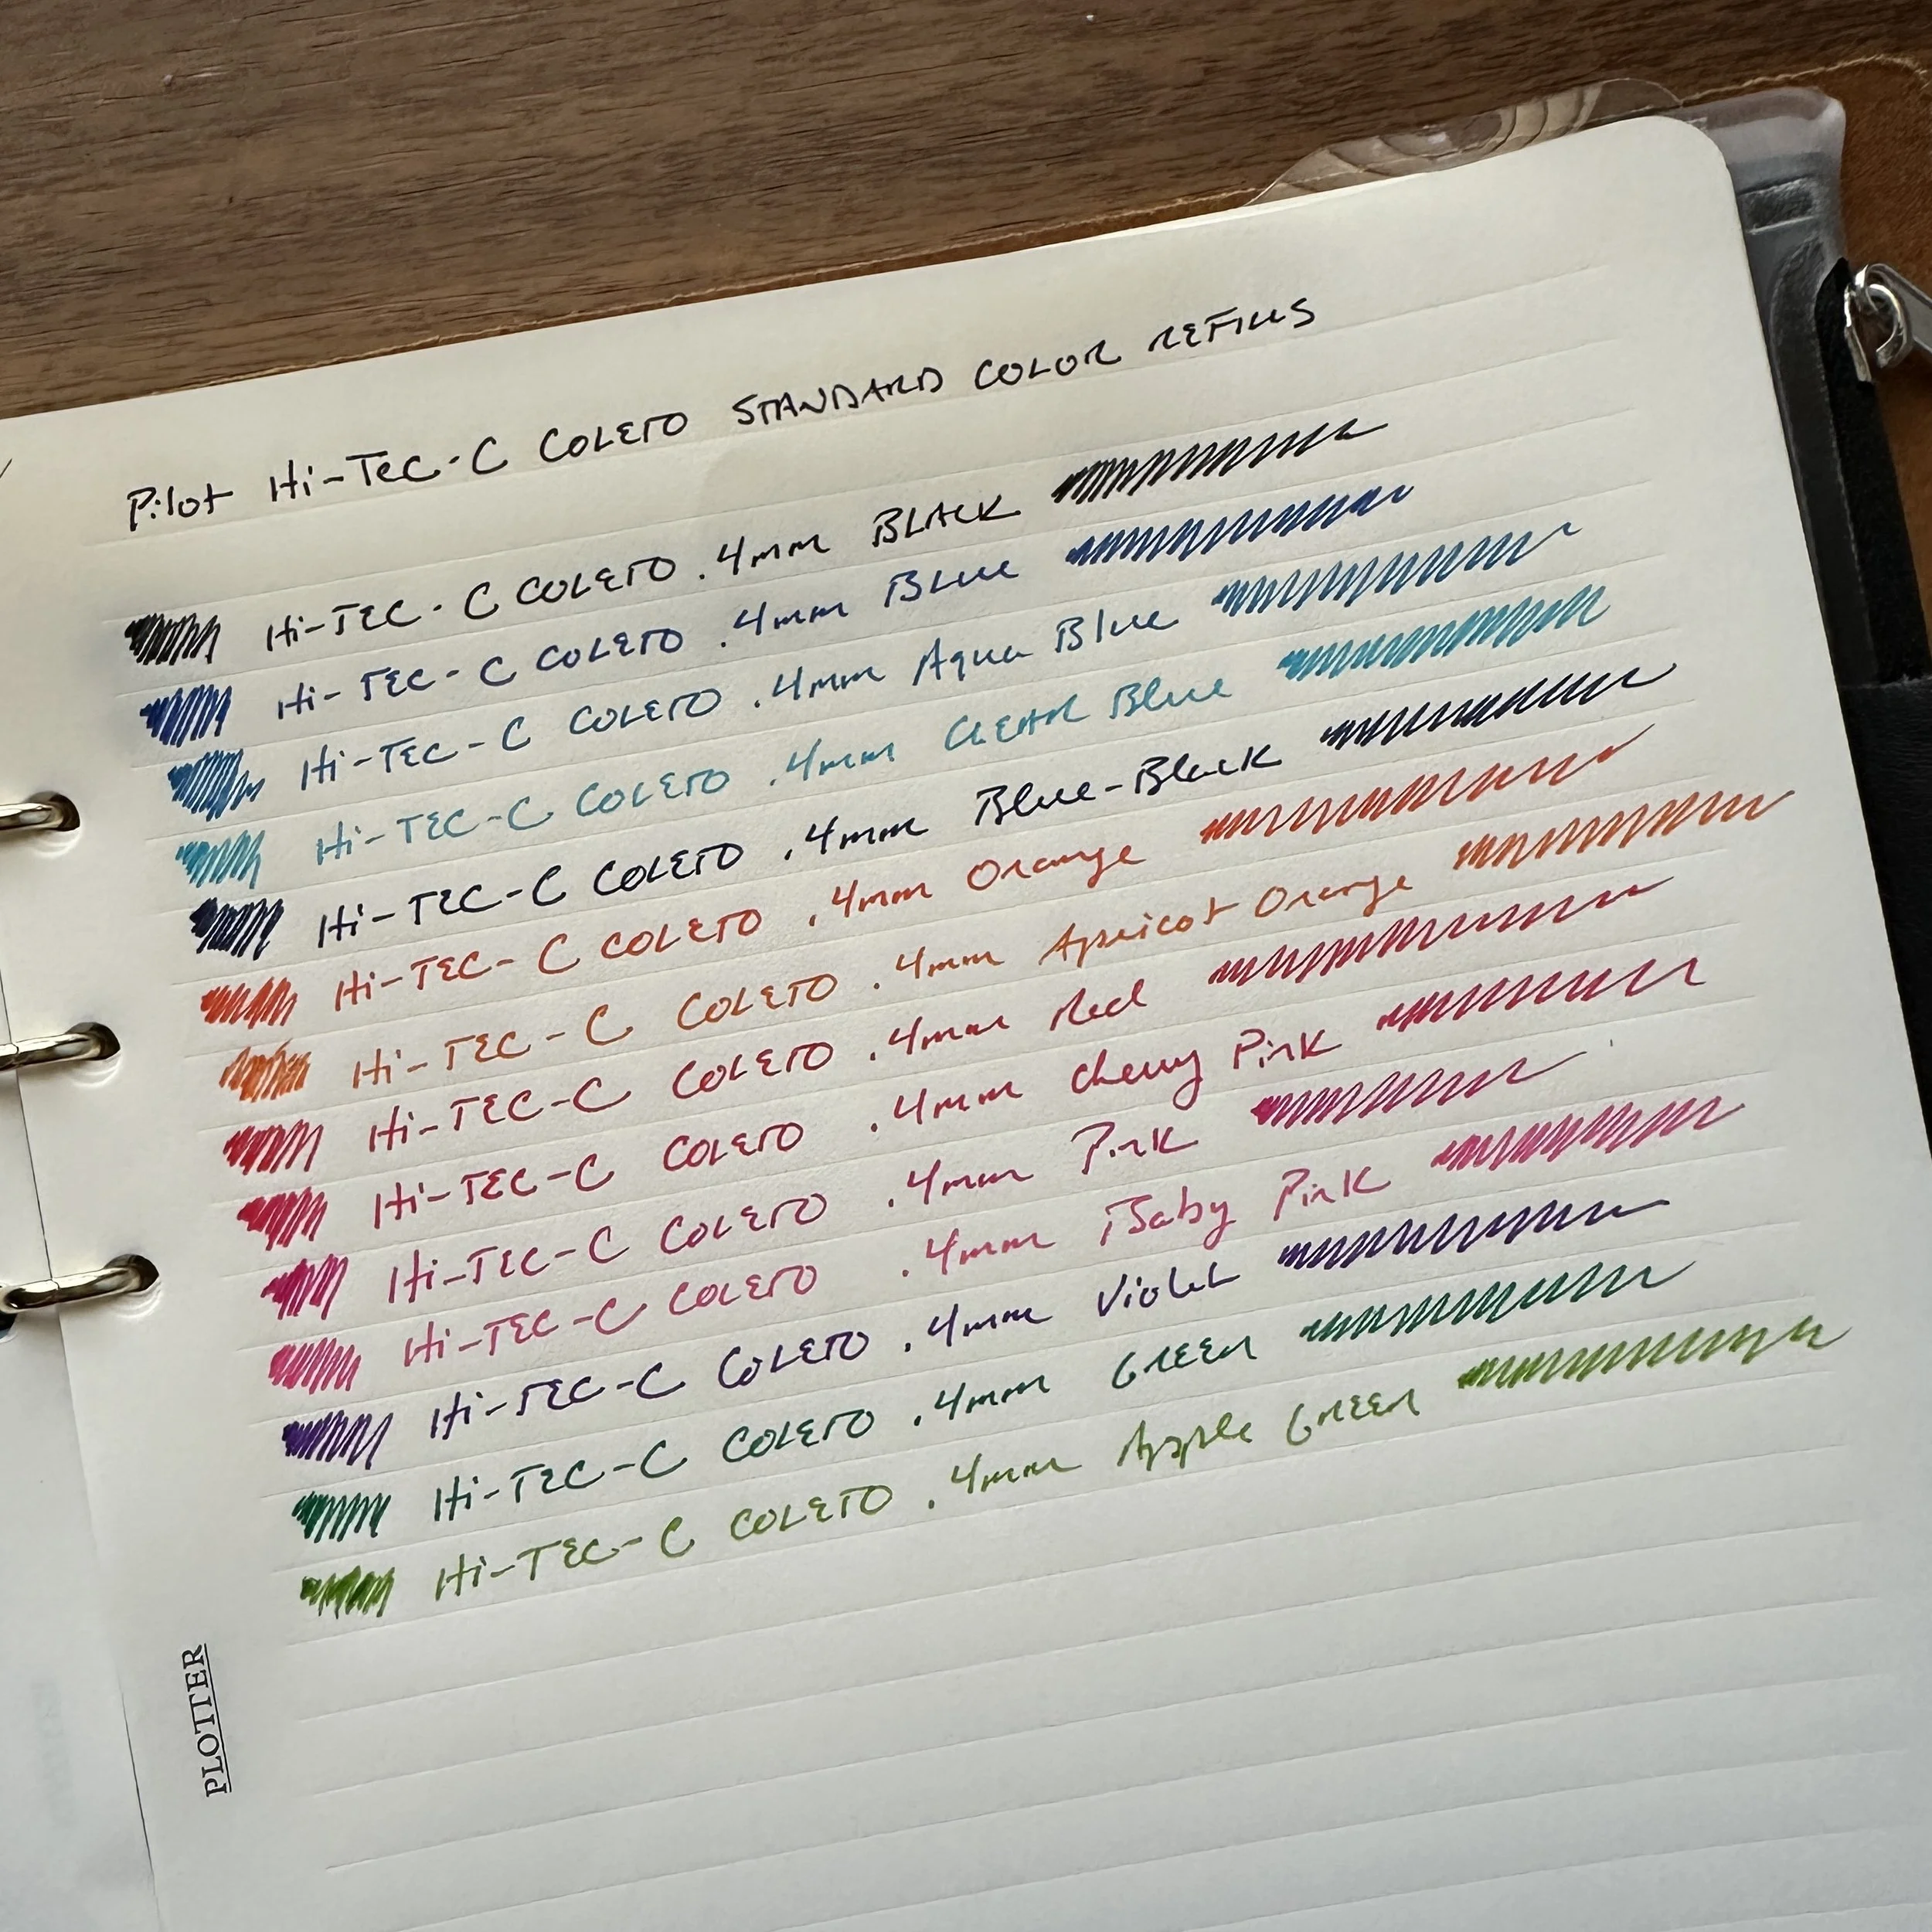 Pilot Hi-Tec-C COLETO STANDARD COLOR REFILLS
Hi-TEC-C COLETO .4mm BLACK
Hi-TEC-C COLETO .4mm BLUE
Hi-TEC-C COLETO .4mm Aqua Blue
Hi-TEC-C COLETO .4mm CLEAR Blue
Hi-TEC-C COLETO .4mm Blue-Black
Hi-TEC-C COLETO .4mm Orange
Hi-TEC-C COLETO .4mm Apricot Orange
Hi-TEC-C COLETO .4mm Red
Hi-TEC-C COLETO .4mm Cherry Pink
Hi-TEC-C COLETO .4mm Pink
Hi-TEC-C COLETO .4mm Baby Pink
Hi-TEC-C COLETO .4mm Violet
Hi-TEC-C COLETO .4mm GREEN
Hi-TEC-C COLETO .4mm Apple GREEN
PLOTTER